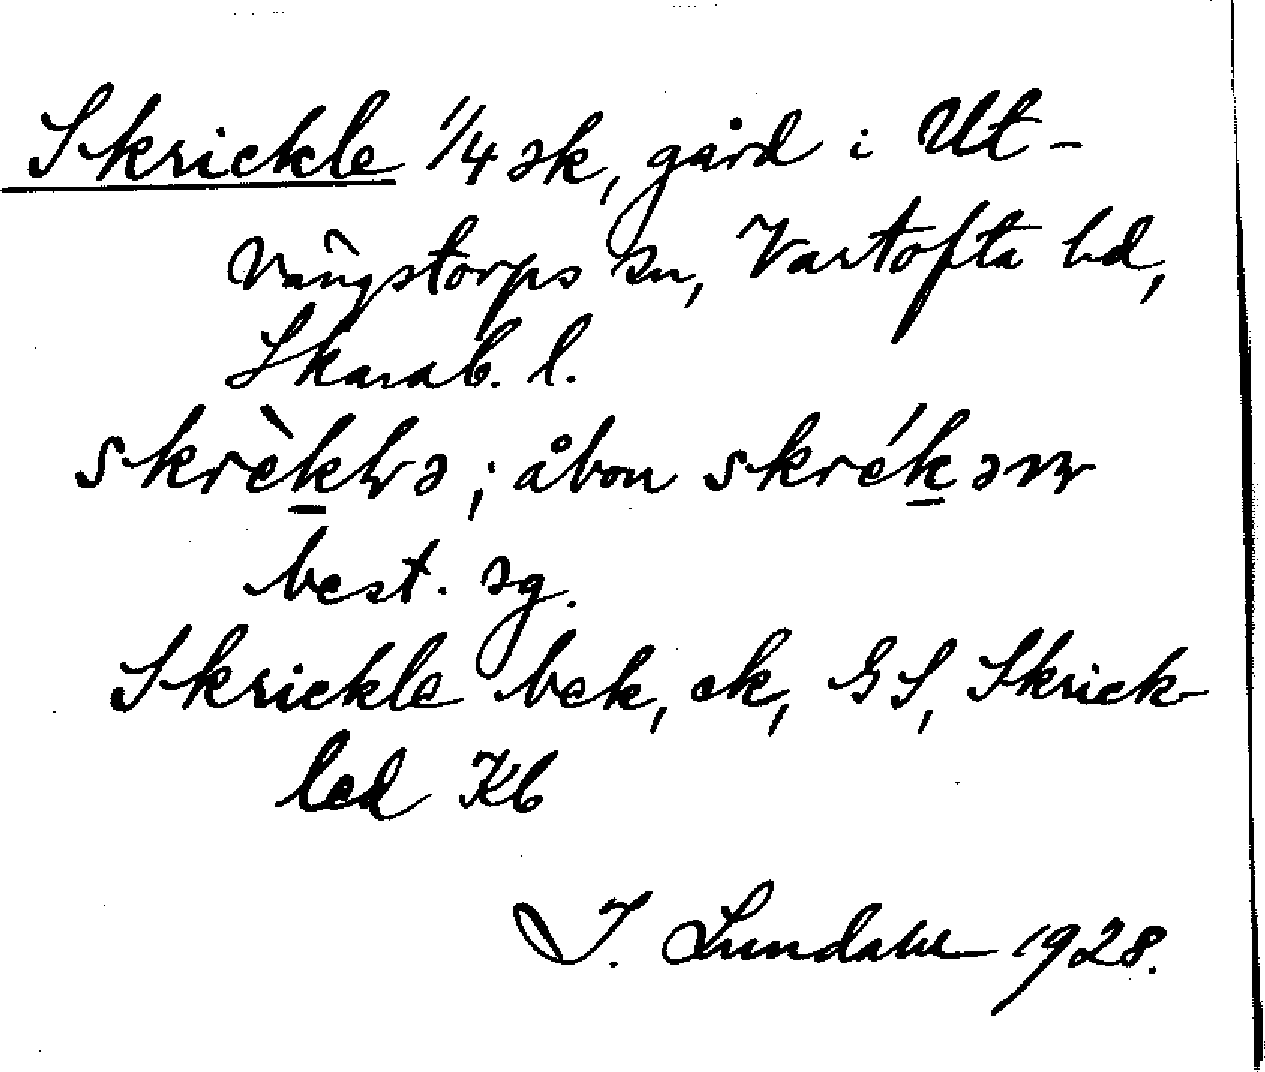 Skrickle 1/4 sk, gård i Ut-
vängstorps sn, Vartofta hd,
Skarab. l.
skrèklɩə; åbon skrékəɴ
best. sg.
Skrickle bek, ek, GS, Skrick-
led Kb
I. Lundahl 1928.